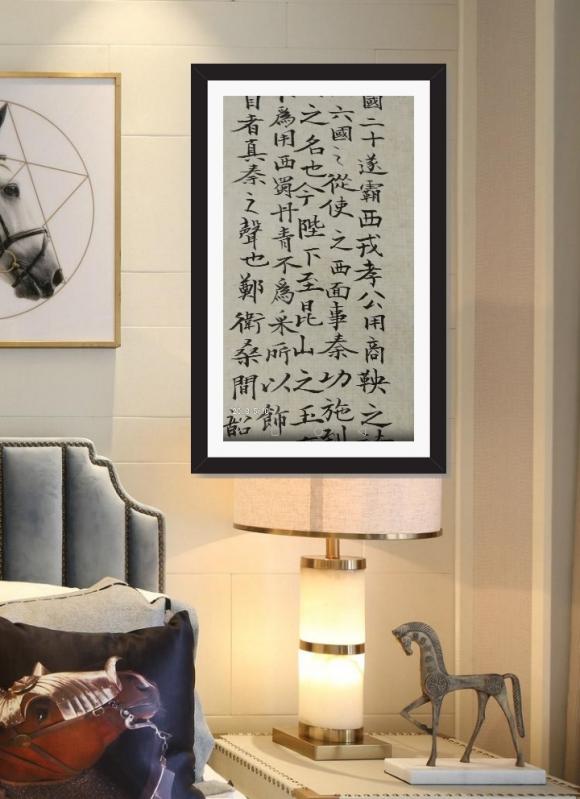 國二十遂霸西戎孝公用商鞅之
六國之從使之西面事秦功施到
之名也今陛下至昆山之玉
爲用西蜀丹青不爲采所以飾
目者真秦之聲也鄭衛桑間韶